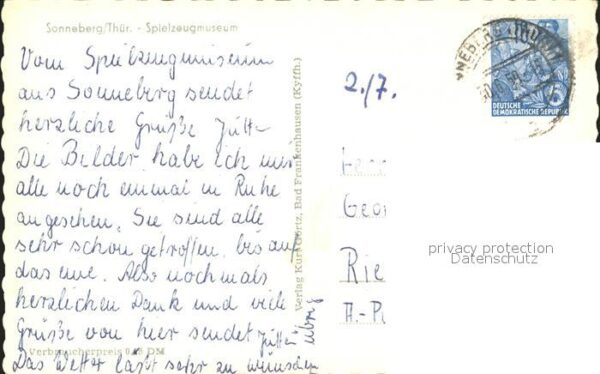 Sonneberg/Thür. - Spielzeugmuseum
Vom Spielzeugmuseum
aus Sonneberg sendet
herzliche Grüße Jutta
Die Bilder habe ich mir
alle noch einmal in Ruhe
angesehen. Sie sind alle
sehr schön getroffen bis auf
das eine. Also nochmals
herzlichen Dank und viele
Grüße von hier sendet Jutta
Das Wetter läßt sehr zu wünschen
übrig
Verbraucherpreis 0,15 DM
Verlag Kurt Görtz, Bad Frankenhausen (Kyffh.)
2./7.
DEUTSCHE
DEMOKRATISCHE REPUBLIK
Geor
Rie
A.-P
privacy protection
Datenschutz